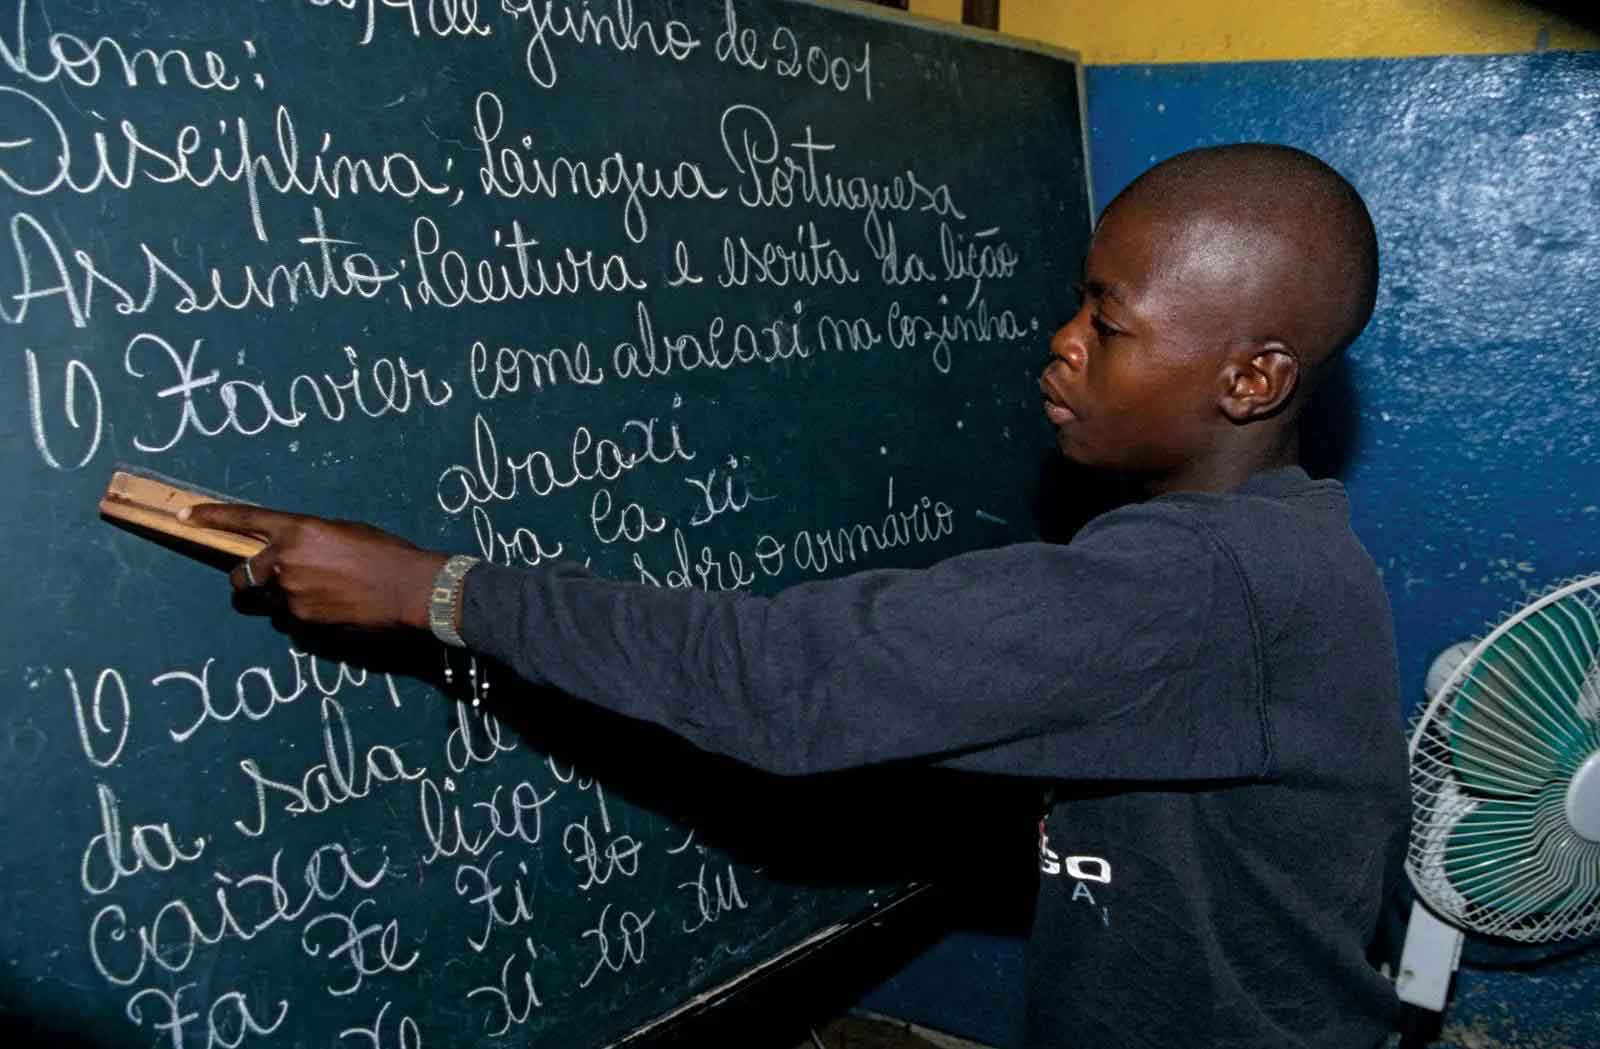 de junho de 2001
Nome:
Disciplina; Leingua Portuguesa
Assunto; Leitura e escrita da lição
O Xávier come abacaxi na cozinha.
abacaxi
ba ca xi
sobre o armário
O
da sala de
caixa lixo
Xa Xe Xi Xo
xe xi xo xu
GO
A